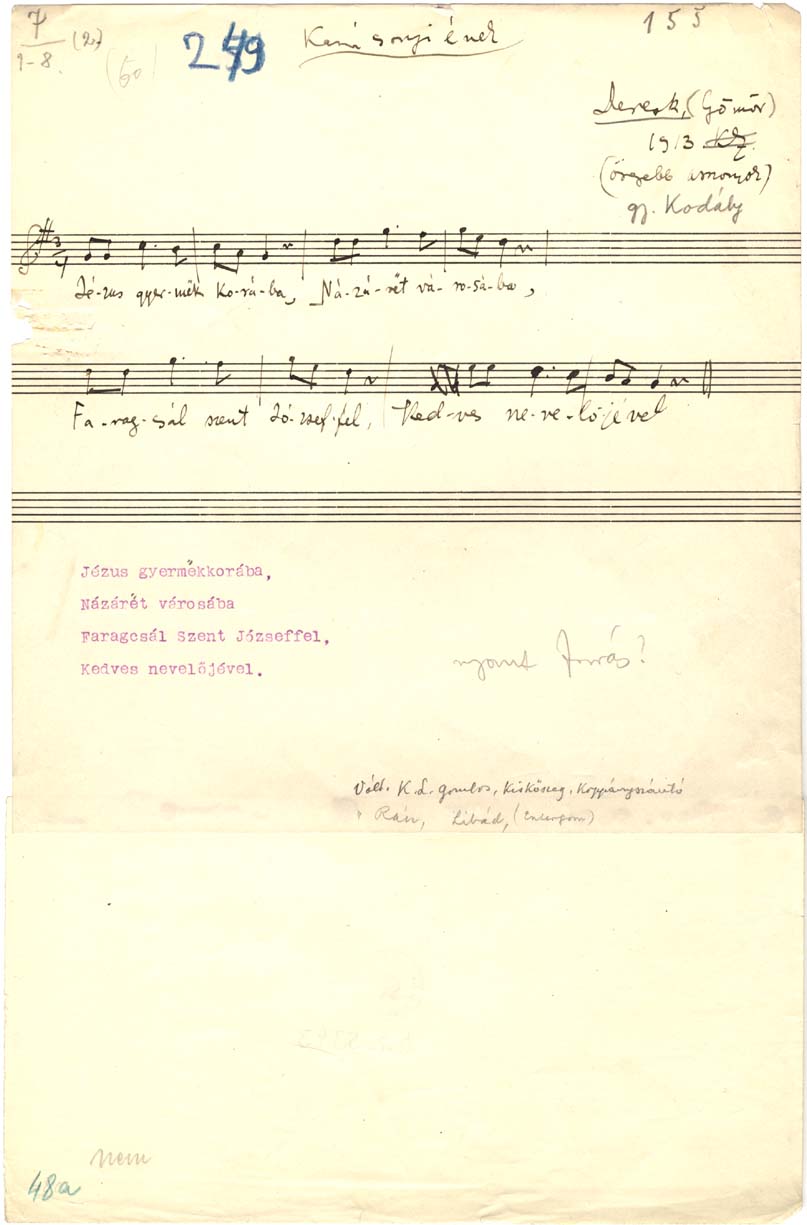 7 (2.)
1-8.
(60)
249
Karácsonyi ének
155
Deresk, (Gömör)
1913
(öregebb asszonyok)
gy. Kodály
3/4
Jé-zus gyer-mek ko-rá-ba, Ná-zá-rët vá-ro-sá-ba,
Fa-rag-csál szent Jó-zsef-fel, Ked-ves ne-ve-lő-jével
Jézus gyermëkkorába,
Názárët városába
Faragcsál Szent Józseffel,
Kedves nevelőjével.
nyomt forrás?
Vált. K. L. Gombos, Kiskőszeg, Koppányszántó
Libád,
nem
48a